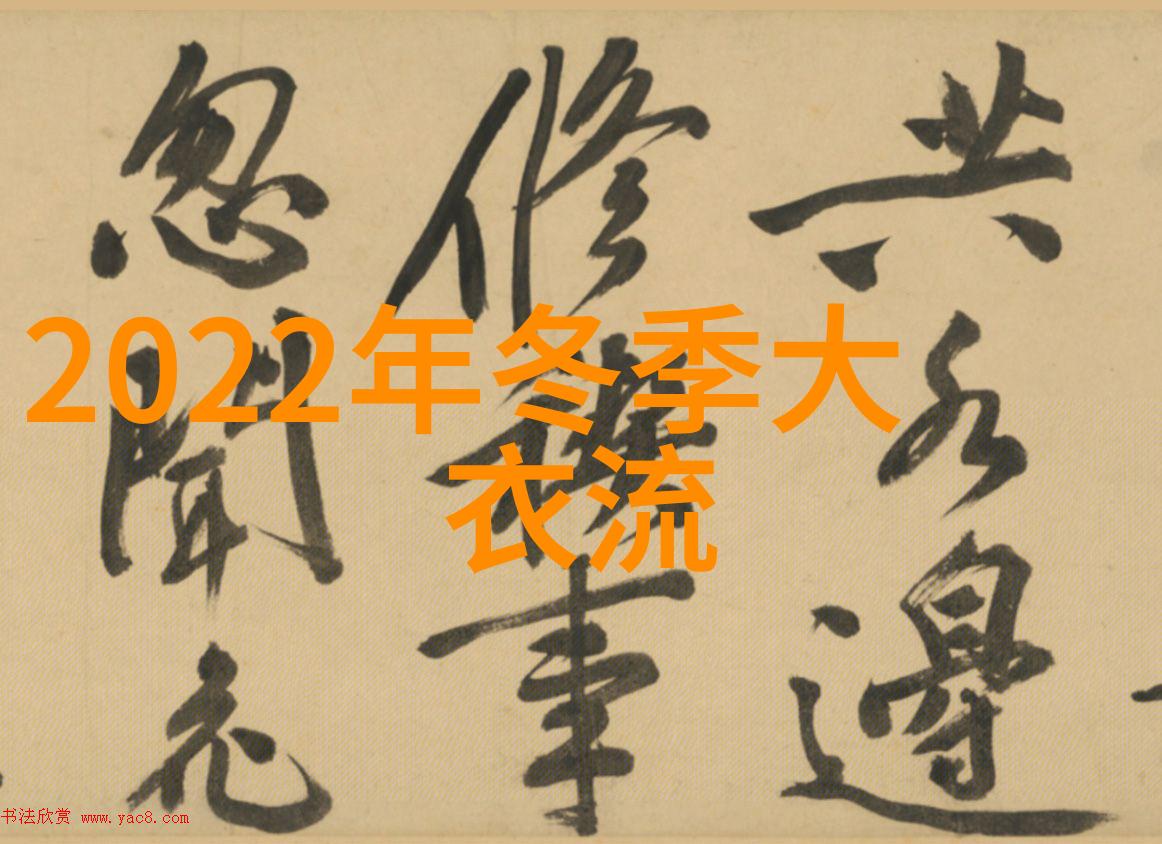 2022年冬季大
衣流
共水邊
修禊事
忽聞花
书法欣赏 www.yac8.com